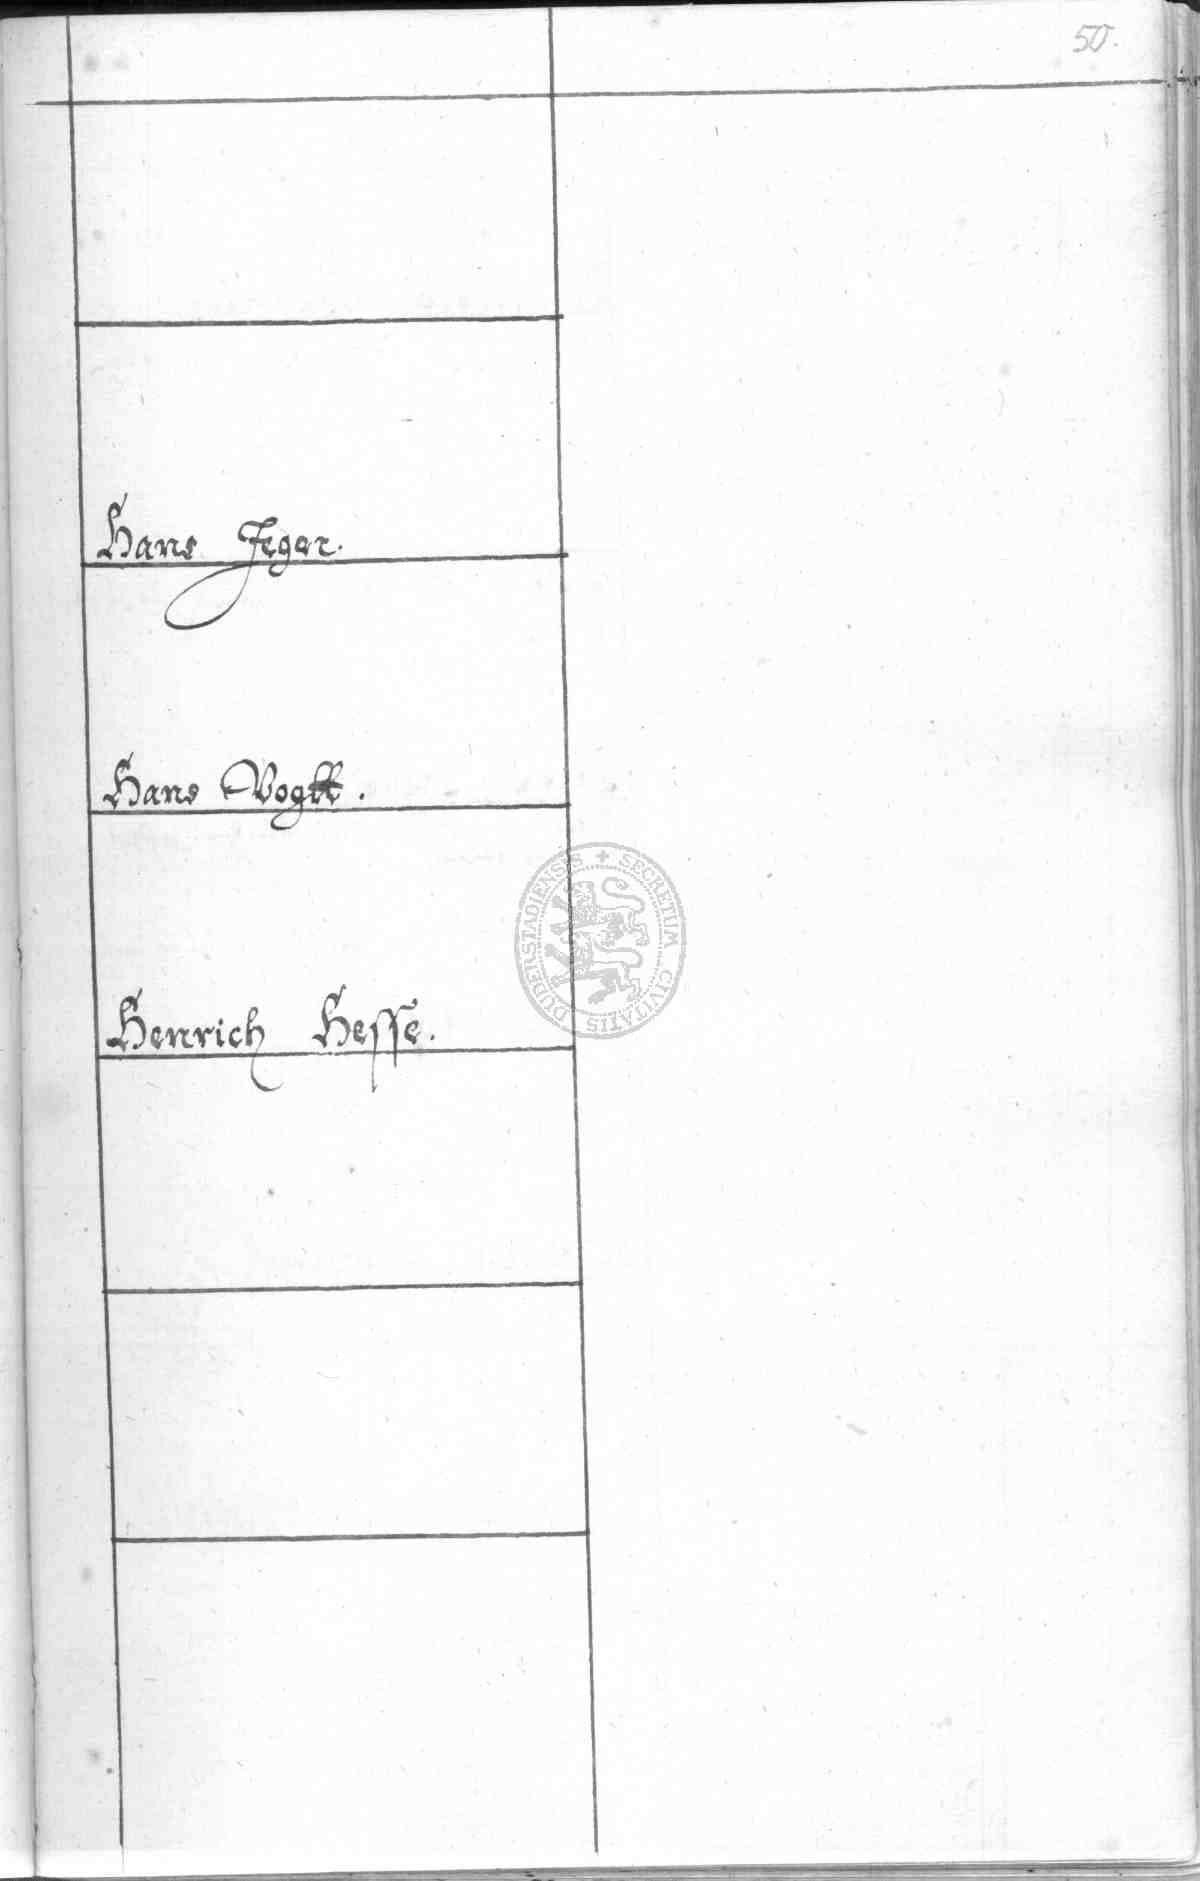 50.
Hans Jeger.
Hans Vogtt.
Henrich Hesse.
SECRETUM CIVITATIS DUDERSTADIENSIS